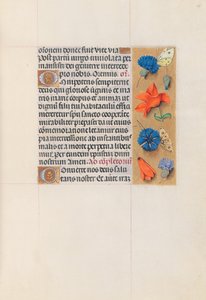 Post partu virgo inviolata
pmansisti dei genitrix intercede
pro nobis Oremus
Omnipotens sempiterne
deus qui gloriose virginis et ma
tris marie corpus et animam ut
dignum filii tui habitaculu effici
mereretur spiritu sancto cooperate
mirabiliter preparasti da ut cuius
comemoratione letamur eius
pia intercessione ab instantibus
malis et a morte perpetua libere
mur Per eundem
Amen Ad completoriu
Converte nos deus salu
taris noster Et averte iram